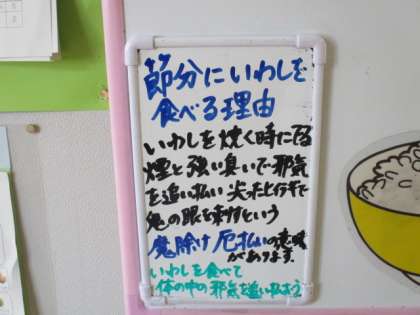 節分にいわしを
食べる理由
いわしを焼く時にでる
煙と強い臭いで邪気
を追い払い 尖ったヒイラギで
鬼の眼を刺すという
魔除け 厄払いの意味
があります。
いわしを食べて
体の中の邪気を追い払おう